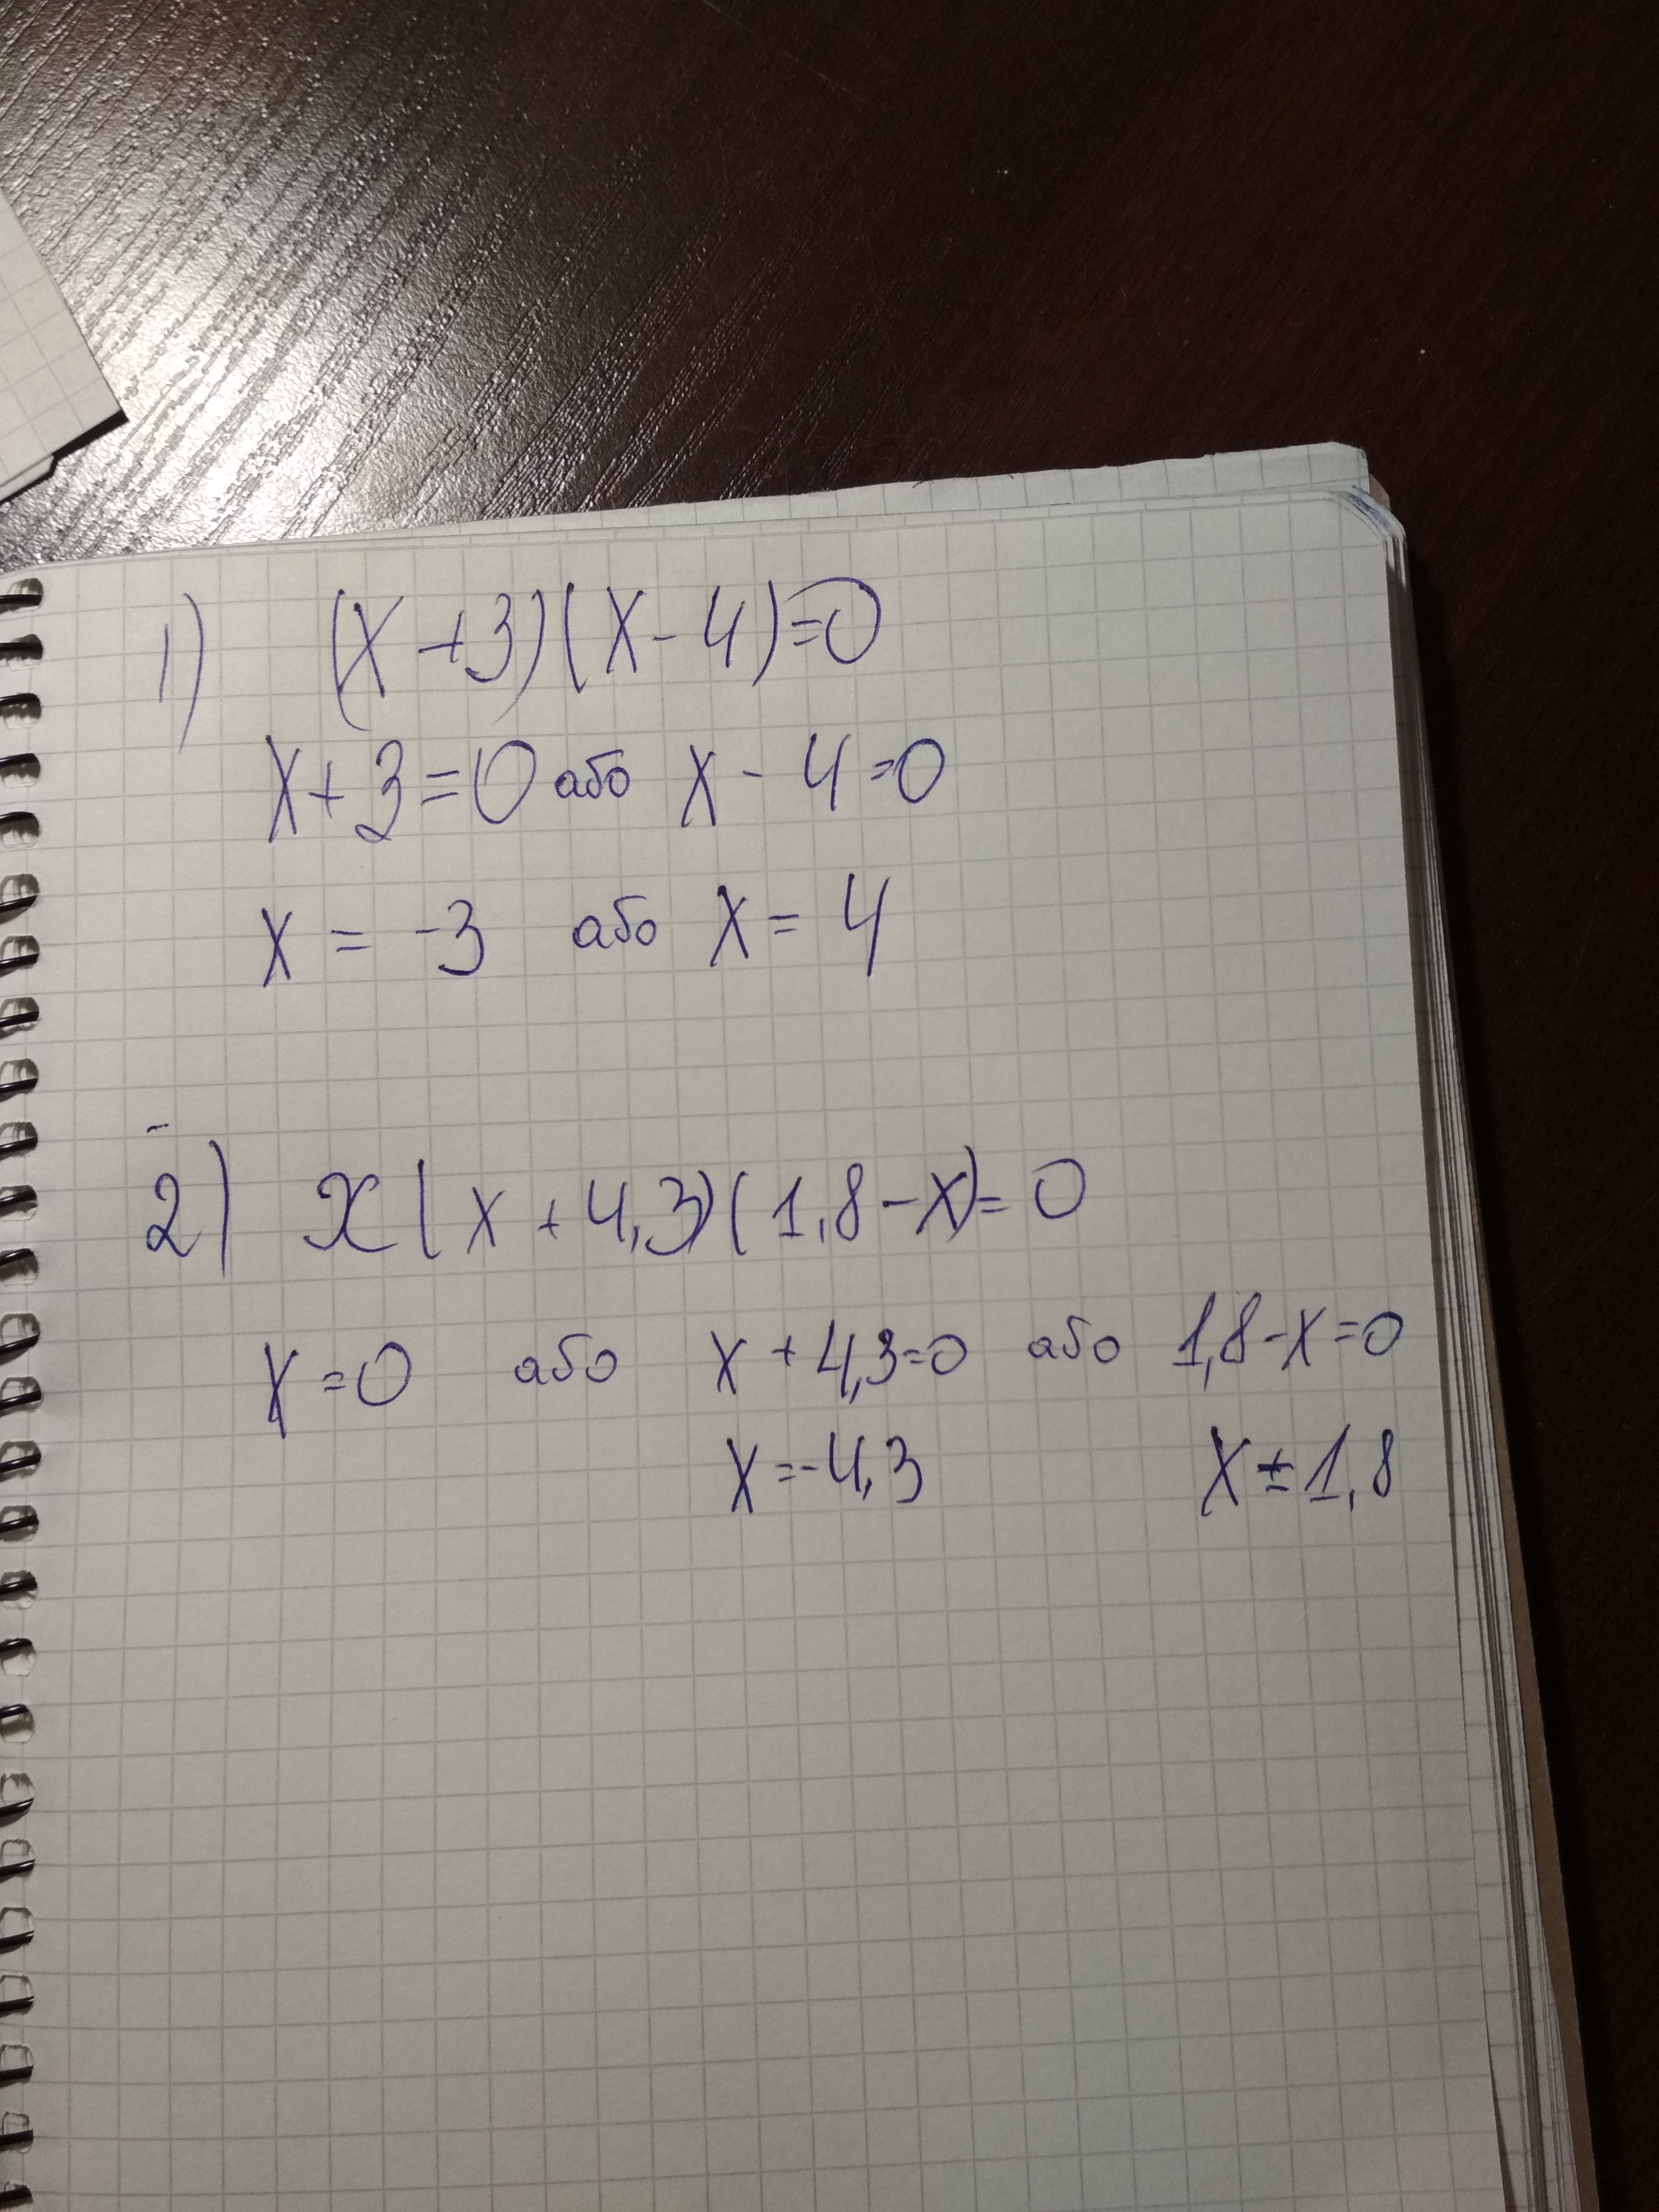 1) (x+3)(x-4)=0
x+3=0 або x-4=0
x = -3 або x = 4
2) x(x+4,3)(1,8-x)=0
x=0 або x+4,3=0 або 1,8-x=0
x=-4,3 x±1,8